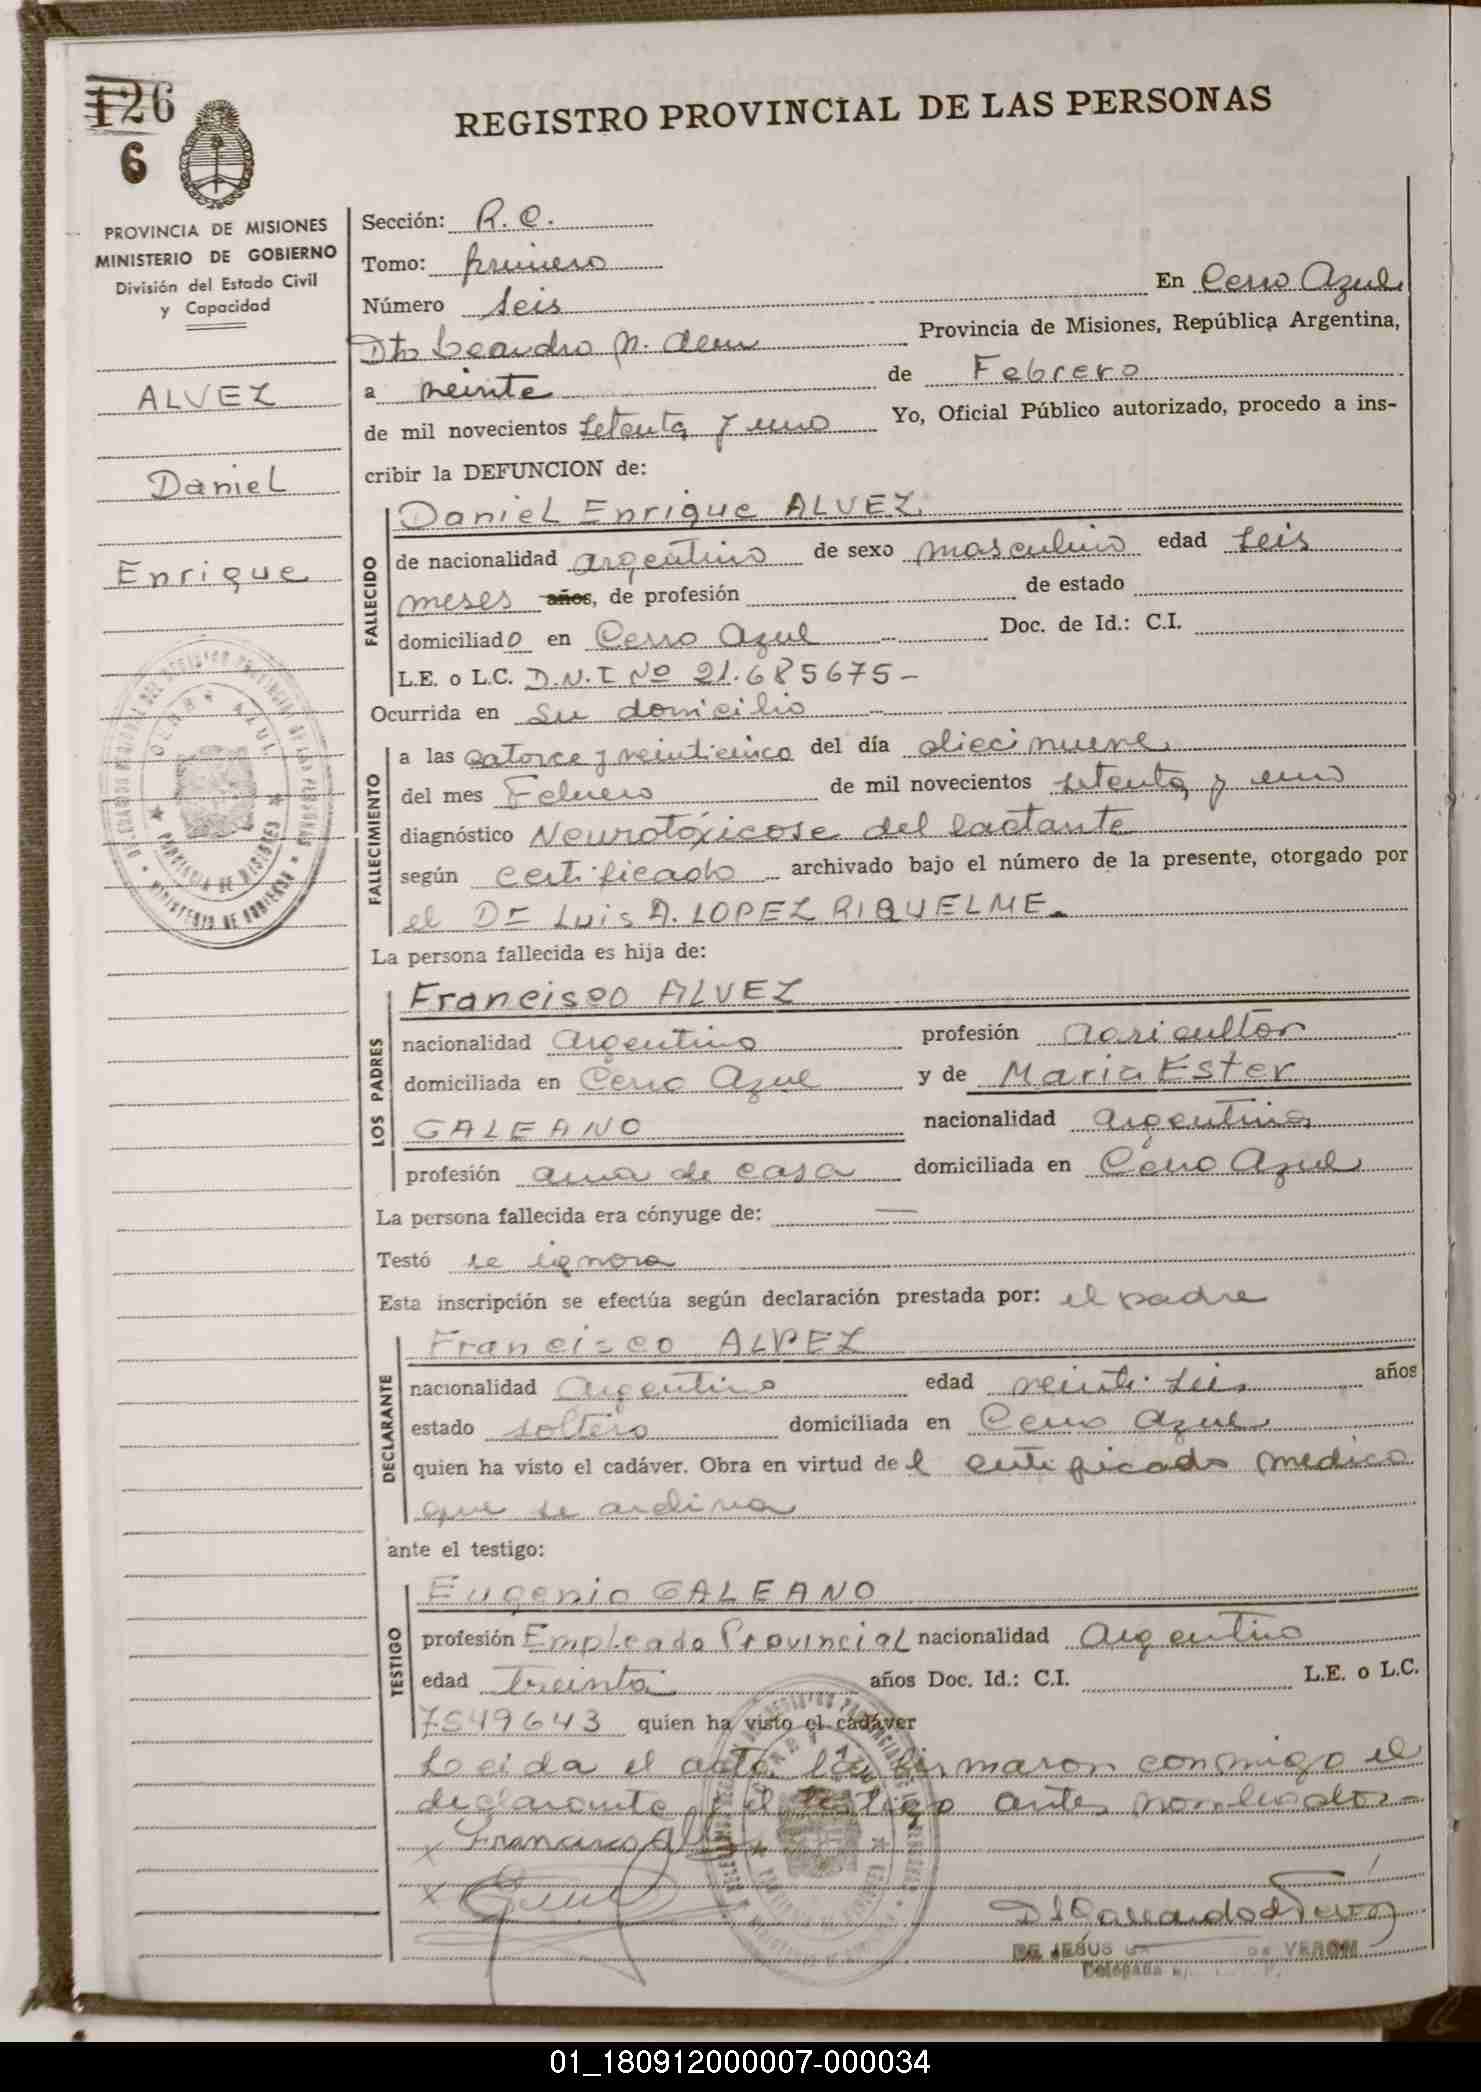 126
6
REGISTRO PROVINCIAL DE LAS PERSONAS
PROVINCIA DE MISIONES
MINISTERIO DE GOBIERNO
División del Estado Civil
y Capacidad
ALVEZ
Daniel
Enrique
Sección: R. C.
Tomo: primero
Número seis En Cerro Azul
Dto Leandro N. Alem Provincia de Misiones, República Argentina,
a veinte de Febrero
de mil novecientos setenta y uno Yo, Oficial Público autorizado, procedo a ins-
cribir la DEFUNCION de:
FALLECIDO
Daniel Enrique ALVEZ
de nacionalidad argentino de sexo masculino edad seis
meses años, de profesión de estado
domiciliado en Cerro Azul Doc. de Id.: C.I.
L.E. o L.C. D.N.I Nº 21.685675-
Ocurrida en su domicilio
FALLECIMIENTO
a las catorce y veinticinco del día diecinueve
del mes Febrero de mil novecientos setenta y uno
diagnóstico Neurotóxicose del lactante
según certificado archivado bajo el número de la presente, otorgado por
el Dr Luis A. LOPEZ RIQUELME.
La persona fallecida es hija de:
LOS PADRES
Francisco ALVEZ
nacionalidad Argentino profesión agricultor
domiciliada en Cerro Azul y de Maria Ester
GALEANO nacionalidad argentina
profesión ama de casa domiciliada en Cerro Azul
La persona fallecida era cónyuge de: —
Testó se ignora
Esta inscripción se efectúa según declaración prestada por: el padre
DECLARANTE
Francisco ALVEZ
nacionalidad Argentino edad veinti seis años
estado soltero domiciliada en Cerro Azul
quien ha visto el cadáver. Obra en virtud del certificado medico
que se archiva
ante el testigo:
TESTIGO
Eugenio GALEANO
profesión Empleado Provincial nacionalidad Argentino
edad Treinta años Doc. Id.: C.I. L.E. o L.C.
7549643 quien ha visto el cadáver
Leida el acta la firmaron conmigo el
declarante y el testigo antes nombrados-
x Francisco Al
x
DE JESÚS DE VERON
Delegada
01_180912000007-000034